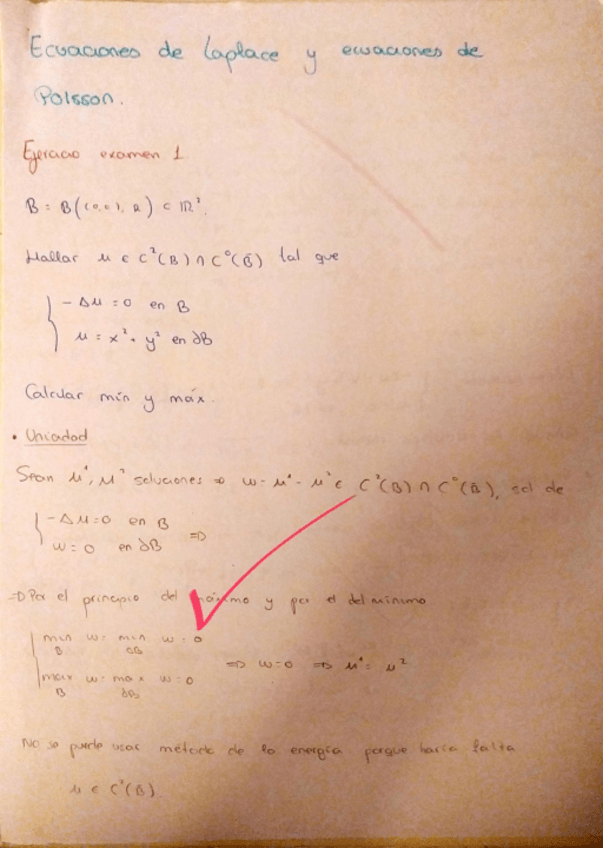 Ecuaciones de Laplace y ecuaciones de
Poisson.
Ejercicio examen 1
B = B((0,0), R) ⊂ ℝ².
Hallar u ∈ C²(B) ∩ C⁰(B̄) tal que
-Δu = 0 en B
u = x² + y² en ∂B
Calcular mín y máx.
• Unicidad
Sean u¹, u² soluciones ⇒ w = u¹ - u² ∈ C²(B) ∩ C⁰(B̄), sol de
-Δu = 0 en B
w = 0 en ∂B ⇒
⇒ Por el principio del máximo y por el del mínimo
min w = min w = 0
B ∂B
⇒ w = 0 ⇒ u¹ = u²
max w = max w = 0
B ∂B
No se puede usar método de la energía porque haría falta
u ∈ C²(B̄).